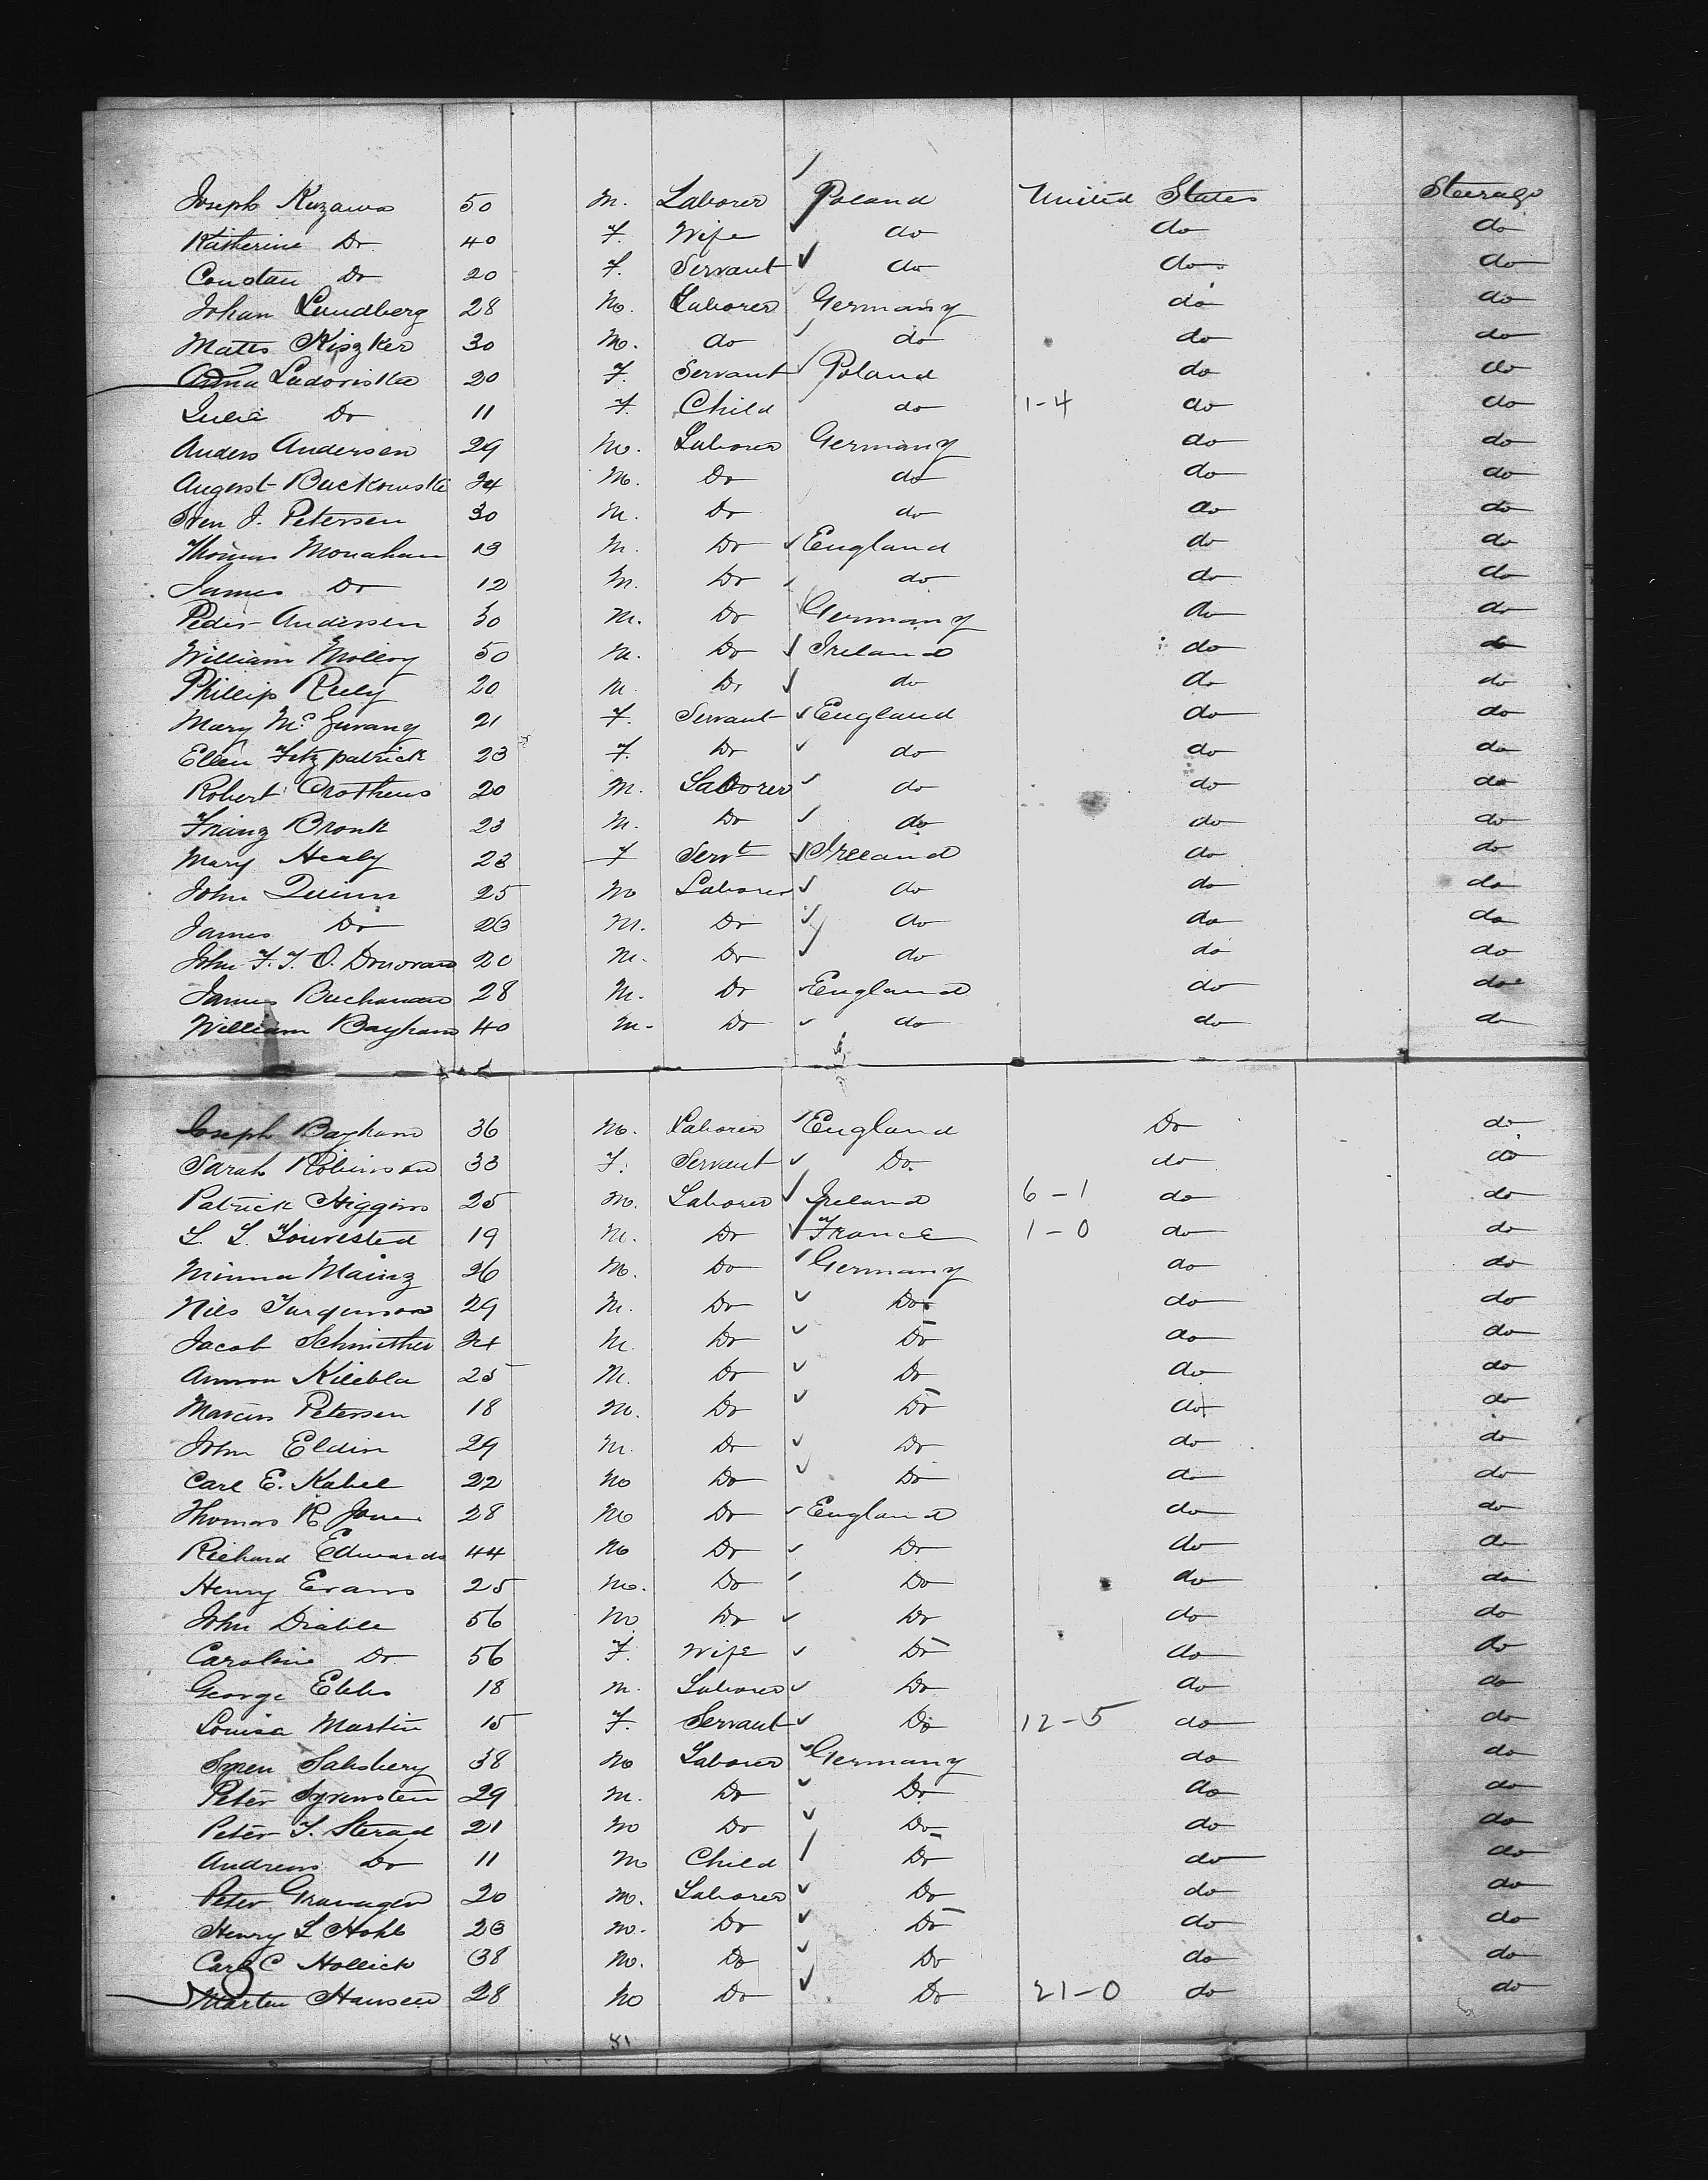 Joseph Kuzawa 50 M. Laborer Poland United States Steerage
Katherine Do 40 F. Wife do do do
Constan Do 20 F. Servant do do do
Johan Lundberg 28 M. Laborer Germany do do
Matts Kiszker 30 M. do do do do
Anna Ladoviska 20 F. Servant Poland do do
Julia Do 11 F Child do 1-4 do do
Anders Andersen 29 M. Laborer Germany do do
August Buckowski 24 M. Do do do do
Sven J. Petersen 30 M. Do do do do
Thomas Monahan 13 M. Do England do do
James Do 12 M. Do do do do
Peder Andersen 30 M. Do Germany do do
William Molloy 50 M. Do Ireland do do
Phillip Reely 20 M Do do do do
Mary Mc 21 F. Servant England do do
Ellen Fitzpatrick 23 F. Do do do do
Robert Crothers 20 M. Laborer do do do
Franz Bronk 23 M. Do do do do
Mary Healy 23 F Servt Ireland do do
John Quinn 25 M Laborer do do do
James Do 23 M. Do do do do
John F. J. O. Donovan 20 M. Do do do do
James Buchanan 28 M. Do England do do
William Bayham 40 M. Do do do do
Joseph Bayham 36 M. Laborer England Do do
Sarah Robinson 33 F. Servant Do. do do
Patrick Higgins 25 M. Laborer Ireland 6-1 do do
L. L. 19 M. Do France 1-0 do do
Minna Mainz 26 M. Do Germany do do
Nils Jurgenson 29 M. Do Do do do
Jacob 24 M. Do Do do do
25 M. Do Do do do
Marcus Petersen 18 M. Do Do do do
John Eldin 29 M. Do Do do do
Carl E. Kabel 22 M Do Do do do
Thomas R Jones 28 M Do England do do
Richard Edwards 44 M Do Do do do
Henry Evans 25 M. Do Do do do
John Diable 56 M Do Do do do
Caroline Do 56 F. Wife Do do do
George Ebbs 18 M. Laborer Do do do
Louisa Martin 15 F. Servant Do 12-5 do do
Salisbery 38 M Laborer Germany do do
Peter 29 M. Do Do do do
Peter J. Sterad 21 M Do Do do do
Andrew Do 11 M Child Do do do
Peter 20 M. Laborer Do do do
Henry L Hohl 23 M. Do Do do do
Carl C Hollick 38 M. Do Do do do
Marten Hansen 28 M Do Do 21-0 do do
51